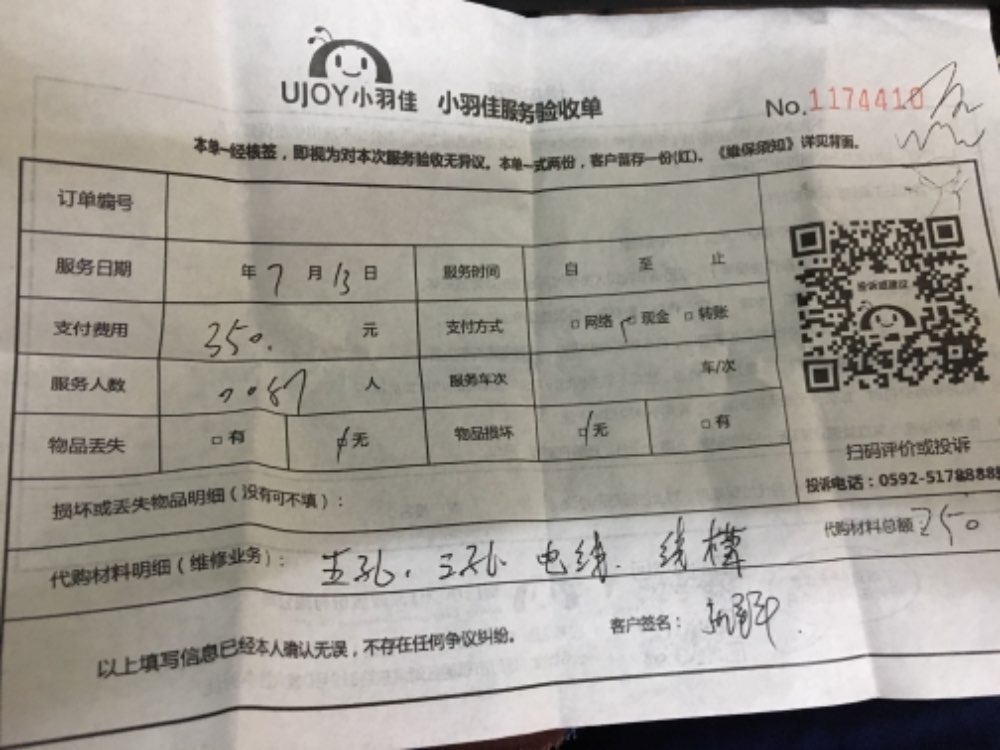 UJOY小羽佳 小羽佳服务验收单 No.1174410
本单一经核签，即视为对本次服务验收无异议。本单一式两份，客户留存一份(红)。《维保须知》详见背面。
订单编号
服务日期 年 7 月 13 日 服务时间 自 至 止
支付费用 350. 元 支付方式 □网络 □现金 □转账
服务人数 人 服务车次 车/次
物品丢失 □有 □无 物品损坏 □无 □有
投诉或建议
扫码评价或投诉
投诉电话：0592-5178888
损坏或丢失物品明细（没有可不填）：
代购材料明细（维修业务）： 五孔. 三孔. 电线. 线槽 代购材料总额 350
以上填写信息已经本人确认无误，不存在任何争议纠纷。 客户签名：